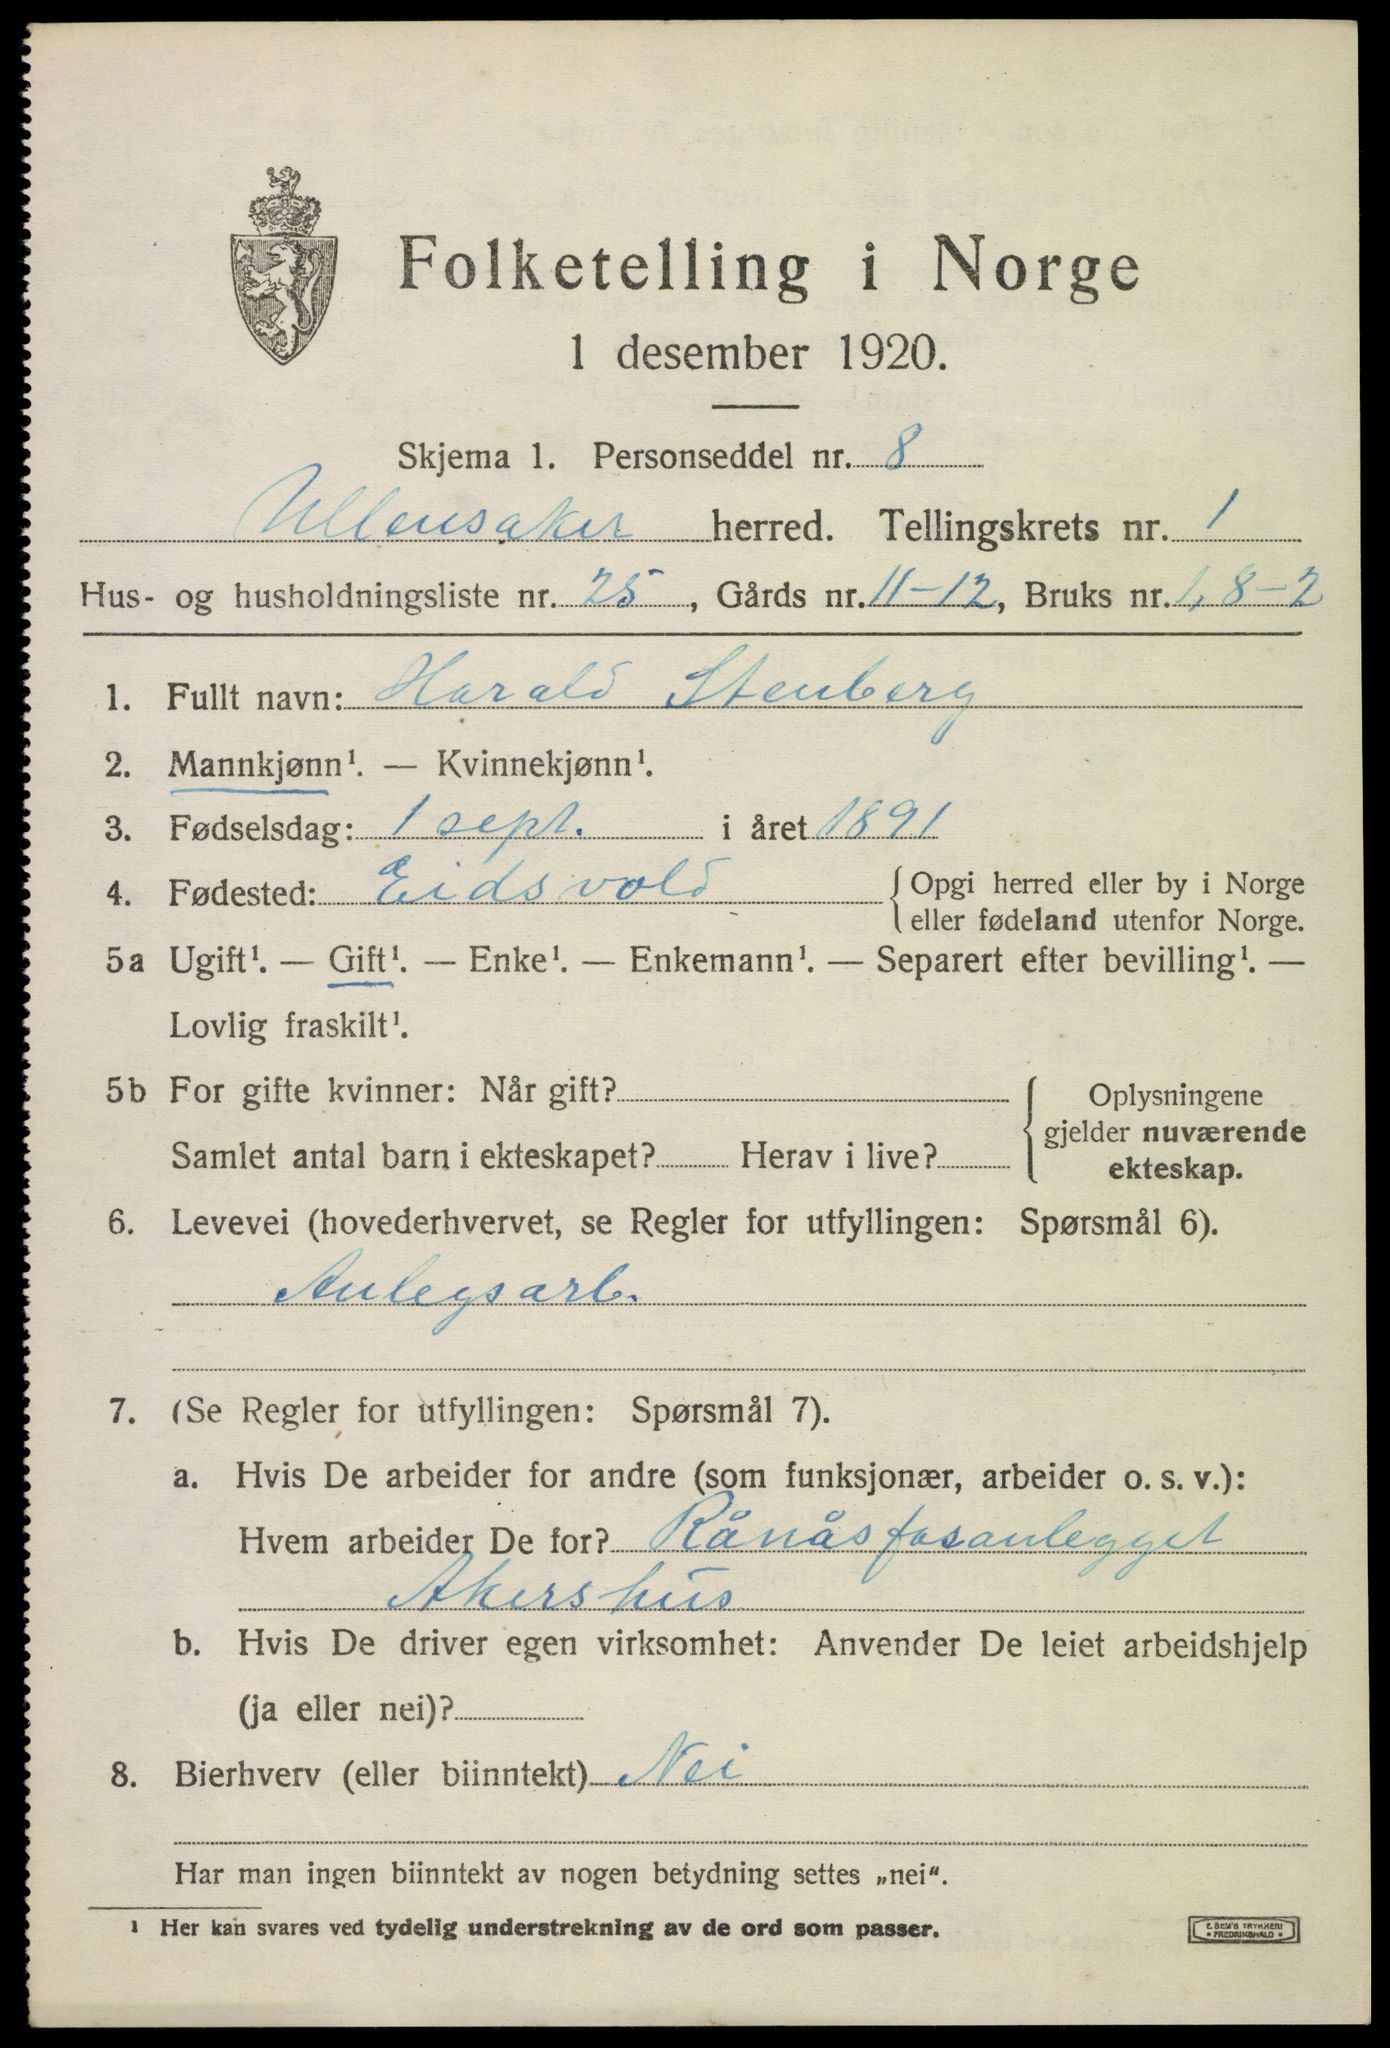 Folketelling i Norge
1 desember 1920.
Skjema 1. Personseddel nr. 8
Ullensaker herred. Tellingskrets nr. 1
Hus- og husholdningsliste nr. 25, Gårds nr. 11-12, Bruks nr. 1, 8-2
1. Fullt navn: Harald Stenberg
2. Mannkjønn¹. — Kvinnekjønn¹.
3. Fødselsdag: 1 sept. i året 1891
4. Fødested: Eidsvold { Opgi herred eller by i Norge
eller fødeland utenfor Norge.
5a Ugift¹. — Gift¹. — Enke¹. — Enkemann¹. — Separert efter bevilling¹. —
Lovlig fraskilt¹.
5b For gifte kvinner: Når gift?
Samlet antal barn i ekteskapet? Herav i live?
{ Oplysningene
gjelder nuværende
ekteskap.
6. Levevei (hovederhvervet, se Regler for utfyllingen: Spørsmål 6).
Anlegsarb.
7. (Se Regler for utfyllingen: Spørsmål 7).
a. Hvis De arbeider for andre (som funksjonær, arbeider o. s. v.):
Hvem arbeider De for? Rånåsfosanlegget
Akershus
b. Hvis De driver egen virksomhet: Anvender De leiet arbeidshjelp
(ja eller nei)?
8. Bierhverv (eller biinntekt) Nei
Har man ingen biinntekt av nogen betydning settes „nei“.
1 Her kan svares ved tydelig understrekning av de ord som passer.
E. SEM'S TRYKKERI
• FREDRIKSHALD •